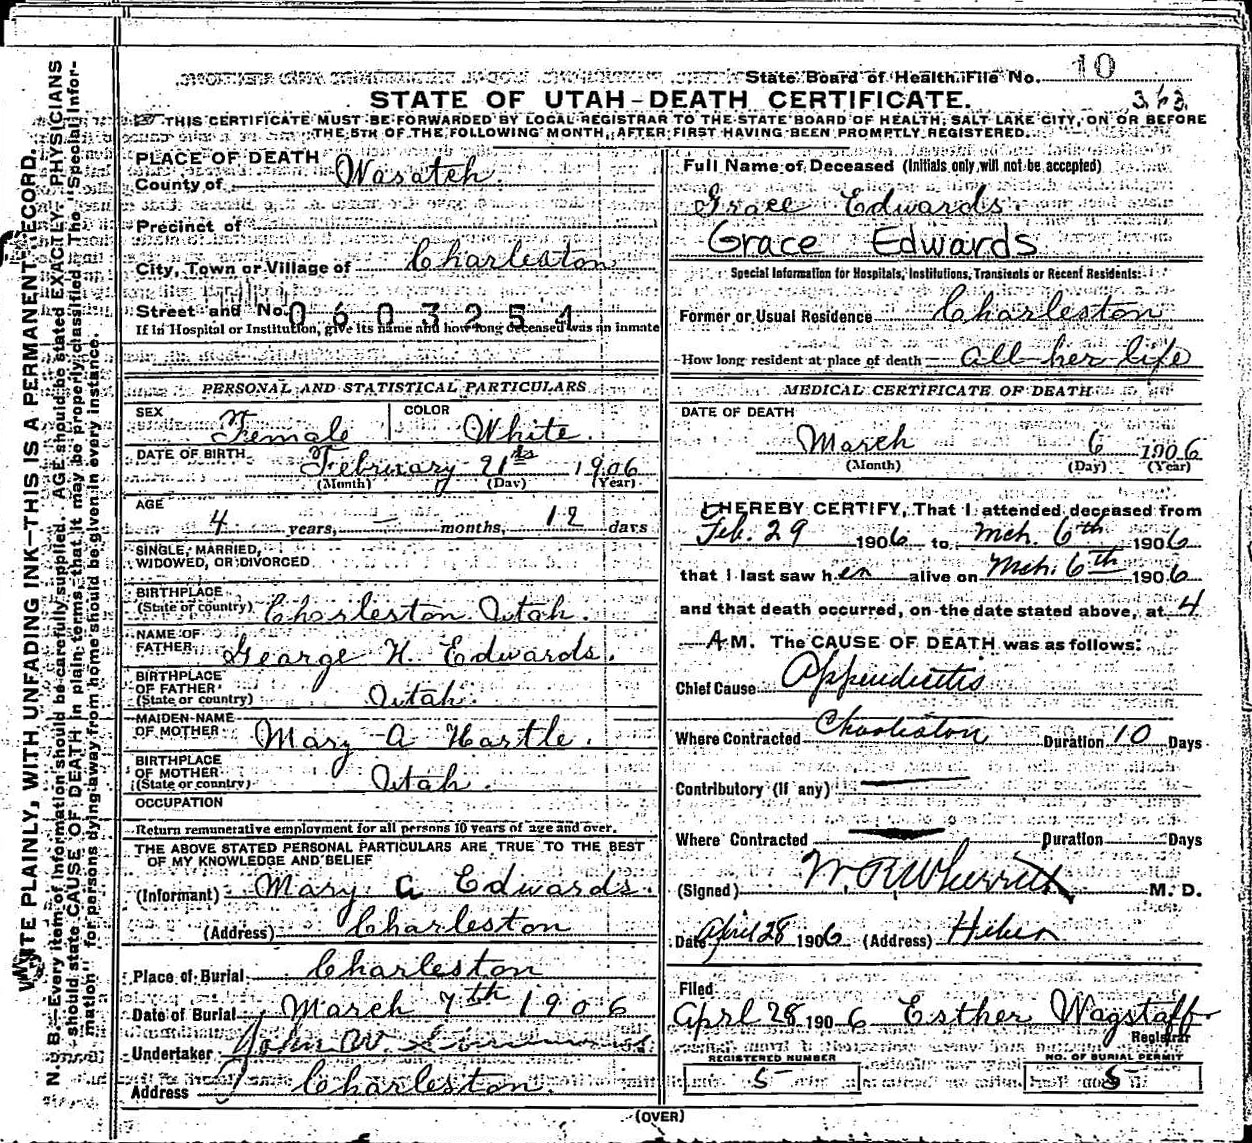 State Board of Health File No. 10
STATE OF UTAH—DEATH CERTIFICATE.
363
THIS CERTIFICATE MUST BE FORWARDED BY LOCAL REGISTRAR TO THE STATE BOARD OF HEALTH, SALT LAKE CITY, ON OR BEFORE
THE 5TH OF THE FOLLOWING MONTH, AFTER FIRST HAVING BEEN PROMPTLY REGISTERED.
WRITE PLAINLY, WITH UNFADING INK—THIS IS A PERMANENT RECORD.
N. B.—Every item of information should be carefully supplied. AGE should be stated EXACTLY. PHYSICIANS
should state CAUSE OF DEATH in plain terms, that it may be properly classified. The "Special Infor-
mation" for persons dying away from home should be given in every instance.
PLACE OF DEATH
County of Wasatch.
Precinct of
City, Town or Village of Charleston
Street and No. 0603254
If in Hospital or Institution, give its name and how long deceased was an inmate
PERSONAL AND STATISTICAL PARTICULARS
SEX Female COLOR White.
DATE OF BIRTH February 21st 1906
(Month) (Day) (Year)
AGE
4 years, — months, 12 days
SINGLE, MARRIED,
WIDOWED, OR DIVORCED
BIRTHPLACE
(State or country) Charleston Utah.
NAME OF
FATHER George H. Edwards.
BIRTHPLACE
OF FATHER
(State or country) Utah.
MAIDEN NAME
OF MOTHER Mary A Hartle.
BIRTHPLACE
OF MOTHER
(State or country) Utah.
OCCUPATION
Return remunerative employment for all persons 10 years of age and over.
THE ABOVE STATED PERSONAL PARTICULARS ARE TRUE TO THE BEST
OF MY KNOWLEDGE AND BELIEF
(Informant) Mary A Edwards.
(Address) Charleston
Place of Burial Charleston
Date of Burial March 7th 1906
Undertaker John W.
Address Charleston.
Full Name of Deceased (Initials only will not be accepted)
Grace Edwards.
Grace Edwards
Special Information for Hospitals, Institutions, Transients or Recent Residents:
Former or Usual Residence Charleston
How long resident at place of death all her life
MEDICAL CERTIFICATE OF DEATH
DATE OF DEATH
March 6 1906
(Month) (Day) (Year)
I HEREBY CERTIFY, That I attended deceased from
Feb. 29 1906 to Mch. 6th 1906
that I last saw her alive on Mch. 6th 1906
and that death occurred, on the date stated above, at 4
A M. The CAUSE OF DEATH was as follows:
Chief Cause Appendicitis
Where Contracted Charleston Duration 10 Days
Contributory (if any)
Where Contracted Duration Days
(Signed) W. R. Wherritt M. D.
Date April 28 1906 (Address) Heber
Filed
Aprl 28 1906 Esther Wagstaff
Registrar
REGISTERED NUMBER
5
NO. OF BURIAL PERMIT
5
(OVER)